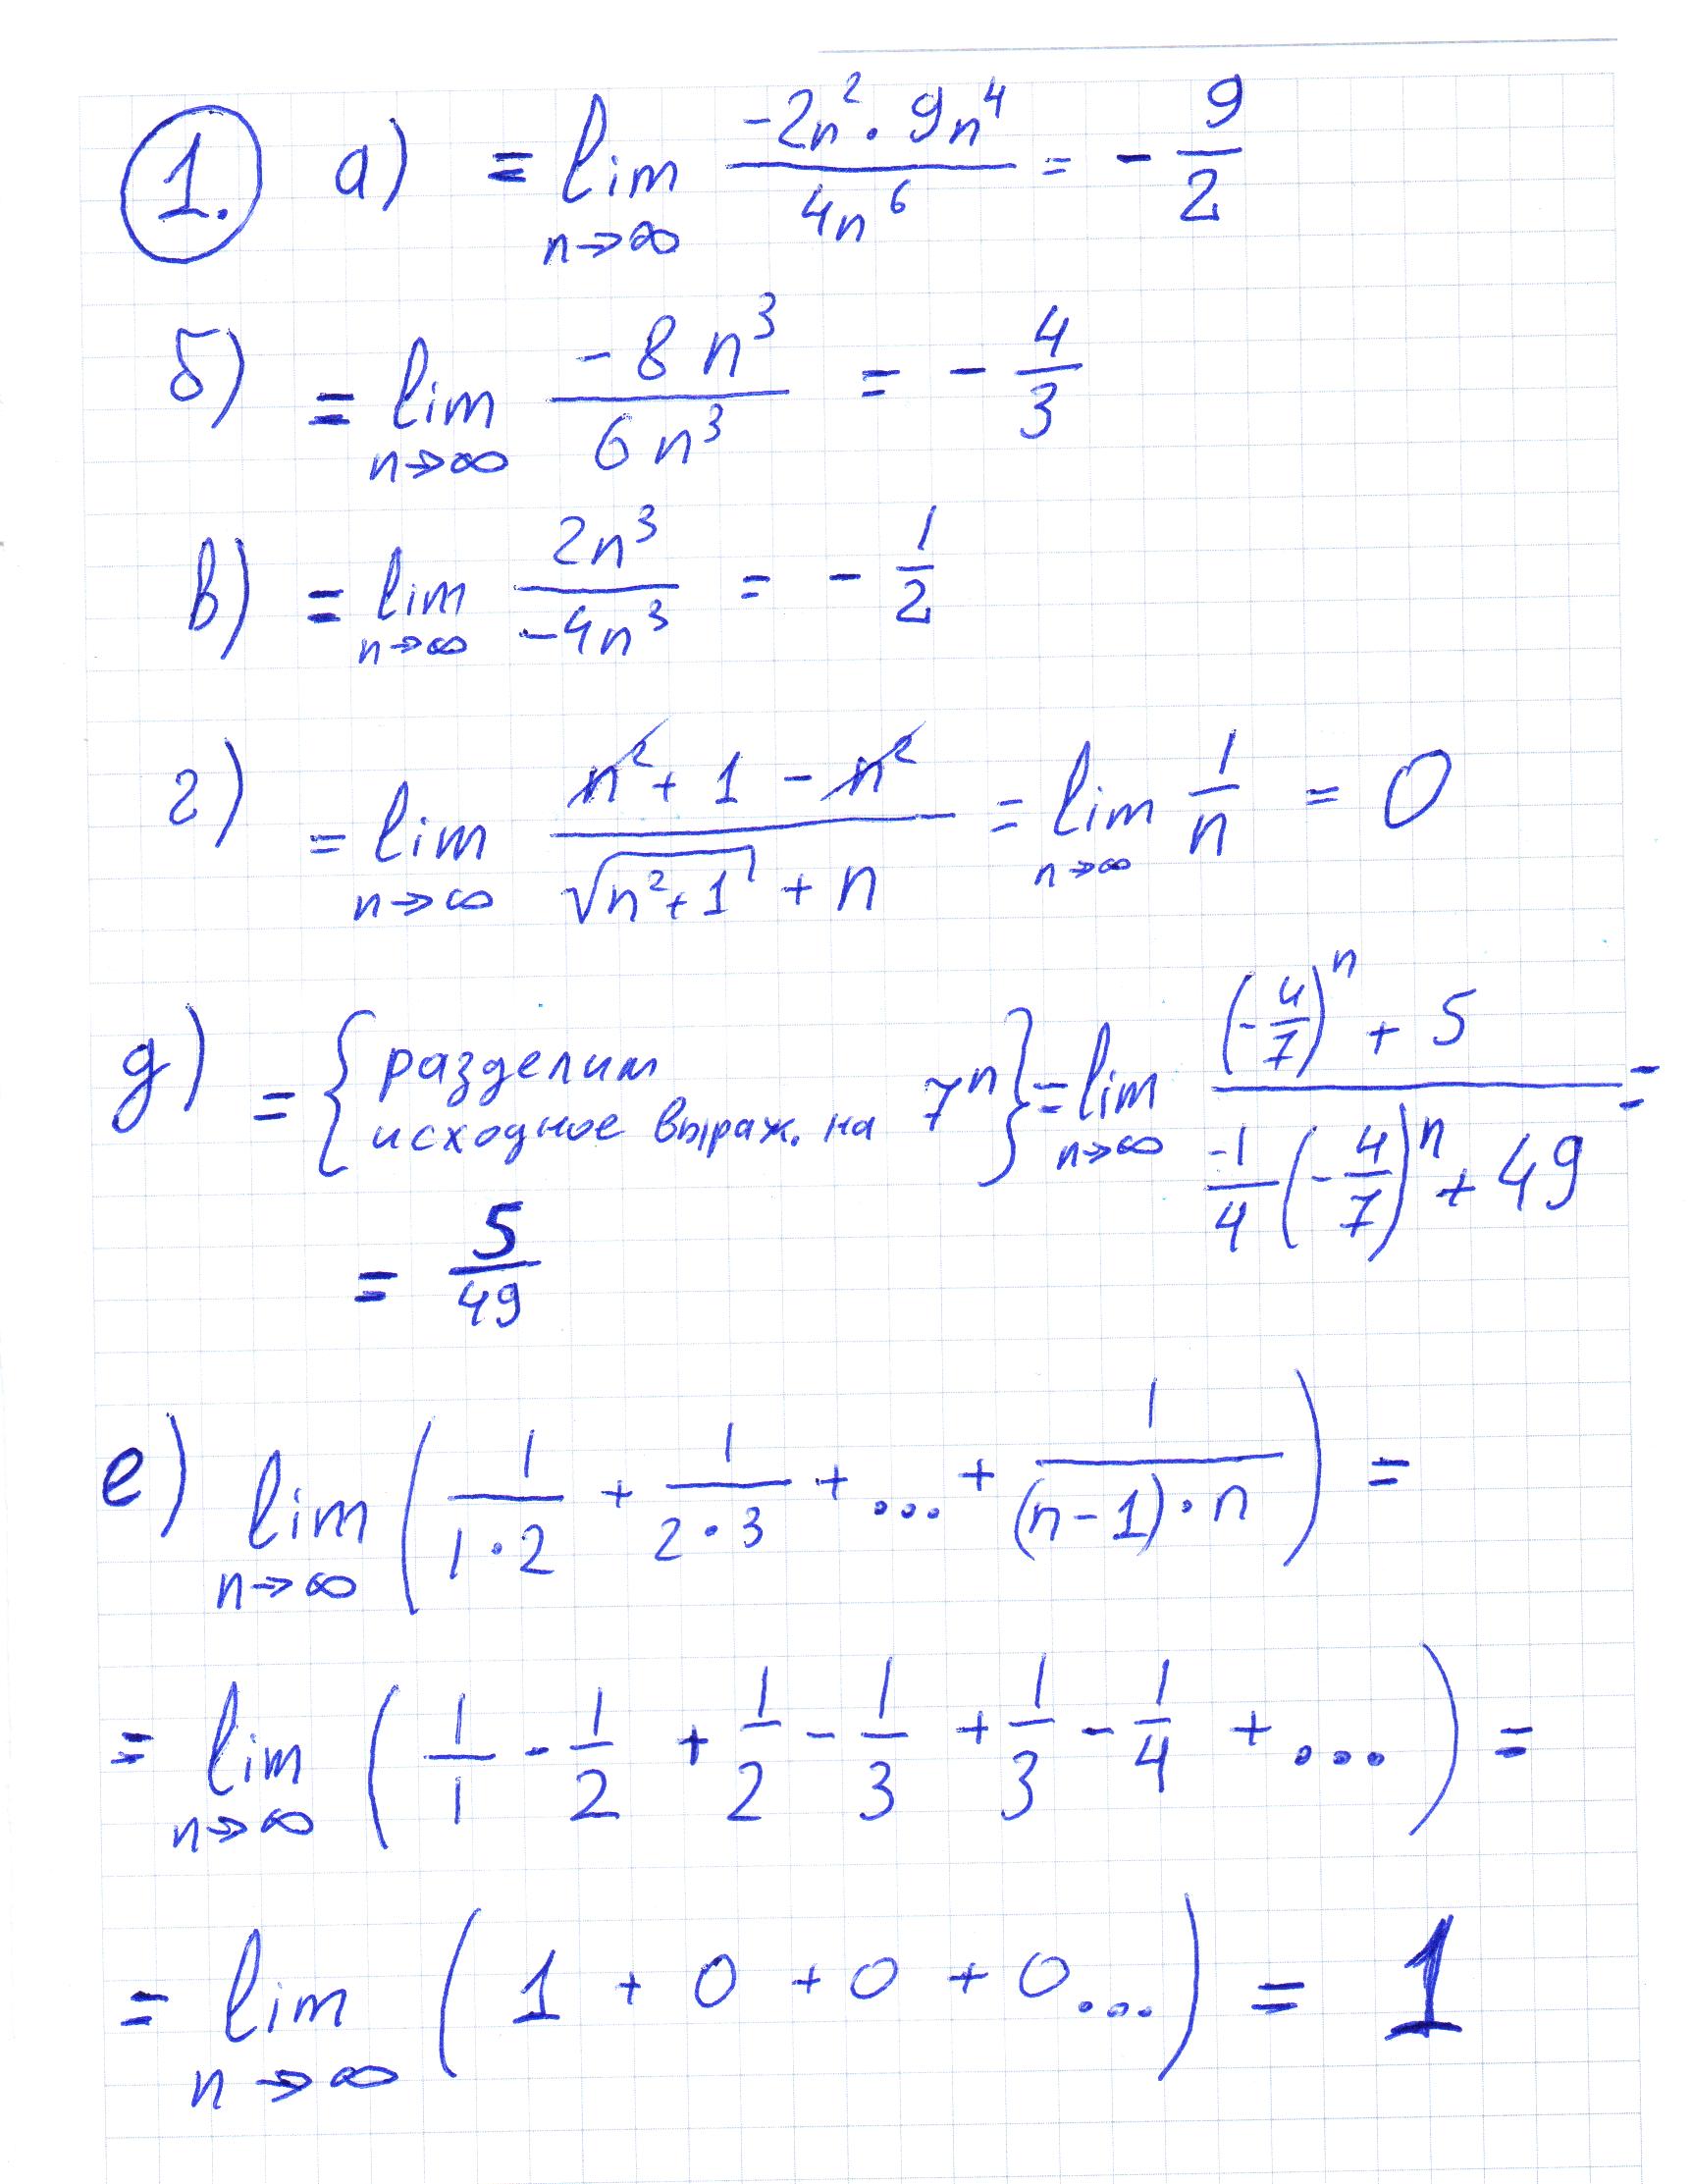 1. а) = lim n→∞ (-2n² · 9n⁴)/(4n⁶) = - 9/2
б) = lim n→∞ (-8n³)/(6n³) = - 4/3
в) = lim n→∞ (2n³)/(-4n³) = - 1/2
г) = lim n→∞ (n² + 1 - n²)/(√(n²+1) + n) = lim n→∞ 1/n = 0
д) = { разделим исходное выраж. на 7ⁿ } = lim n→∞ ((-4/7)ⁿ + 5)/(-1/4 (-4/7)ⁿ + 49) =
= 5/49
е) lim n→∞ (1/(1·2) + 1/(2·3) + ... + 1/((n-1)·n)) =
= lim n→∞ (1/1 - 1/2 + 1/2 - 1/3 + 1/3 - 1/4 + ...) =
= lim n→∞ (1 + 0 + 0 + 0...) = 1